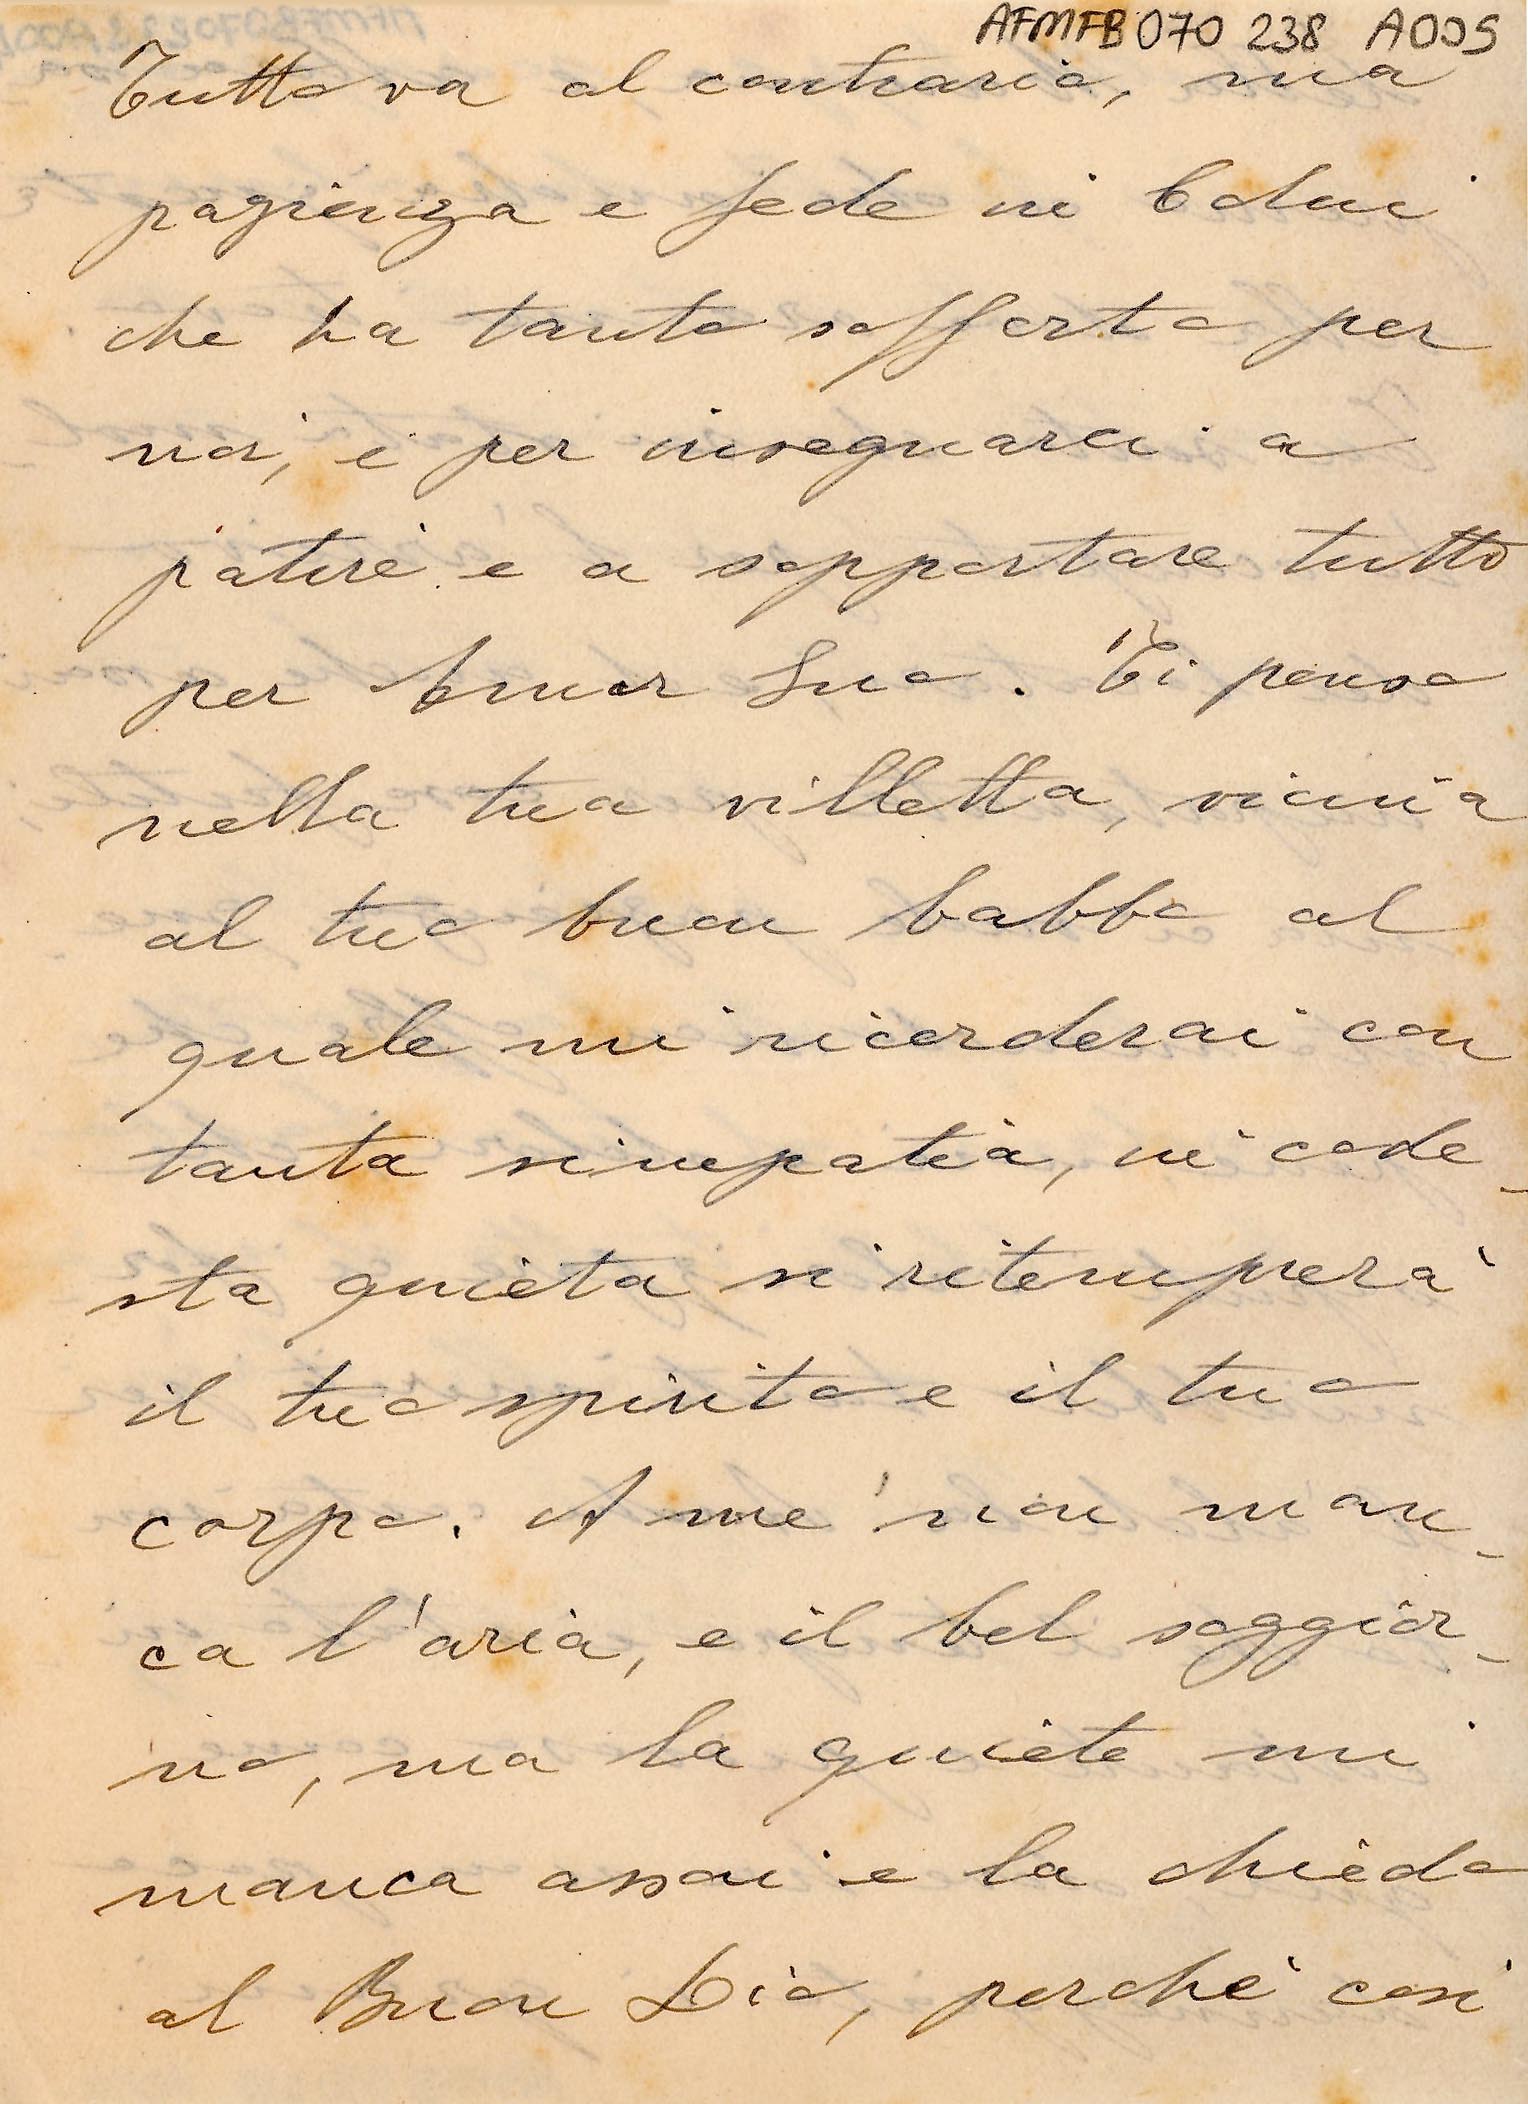 AFMFB 070 238 A005
Tutto va al contrario, ma
pazienza e fede in Colui
che ha tanto sofferto per
noi, e per insegnarci a
patire e a sopportare tutto
per Amor Suo. Ti penso
nella tua villetta, vicina
al tuo buon babbo al
quale mi ricorderai con
tanta simpatia, in code-
sta quieta si ritemprerà
il tuo spirito e il tuo
corpo. A me non man-
ca l'aria, e il bel soggior-
no, ma la quiete mi
manca assai e la chiedo
al Buon Dio, perchè così